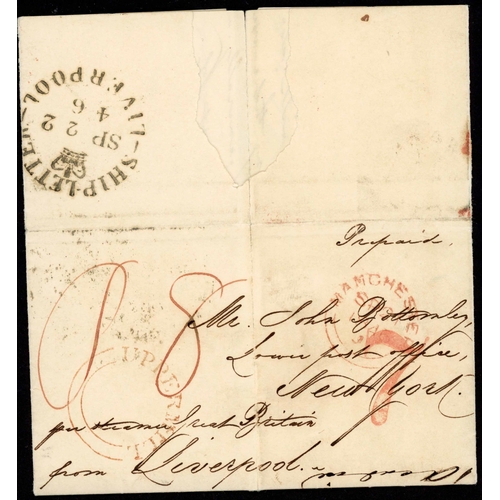 LIVERPOOL
SHIP-LETTER
SP 22
46
Prepaid.
1/8
MANCHESTER
UPPERMILL
Mr. John Bottomley,
Lower post office,
New York.
7
per steamer Great Britain
from Liverpool.